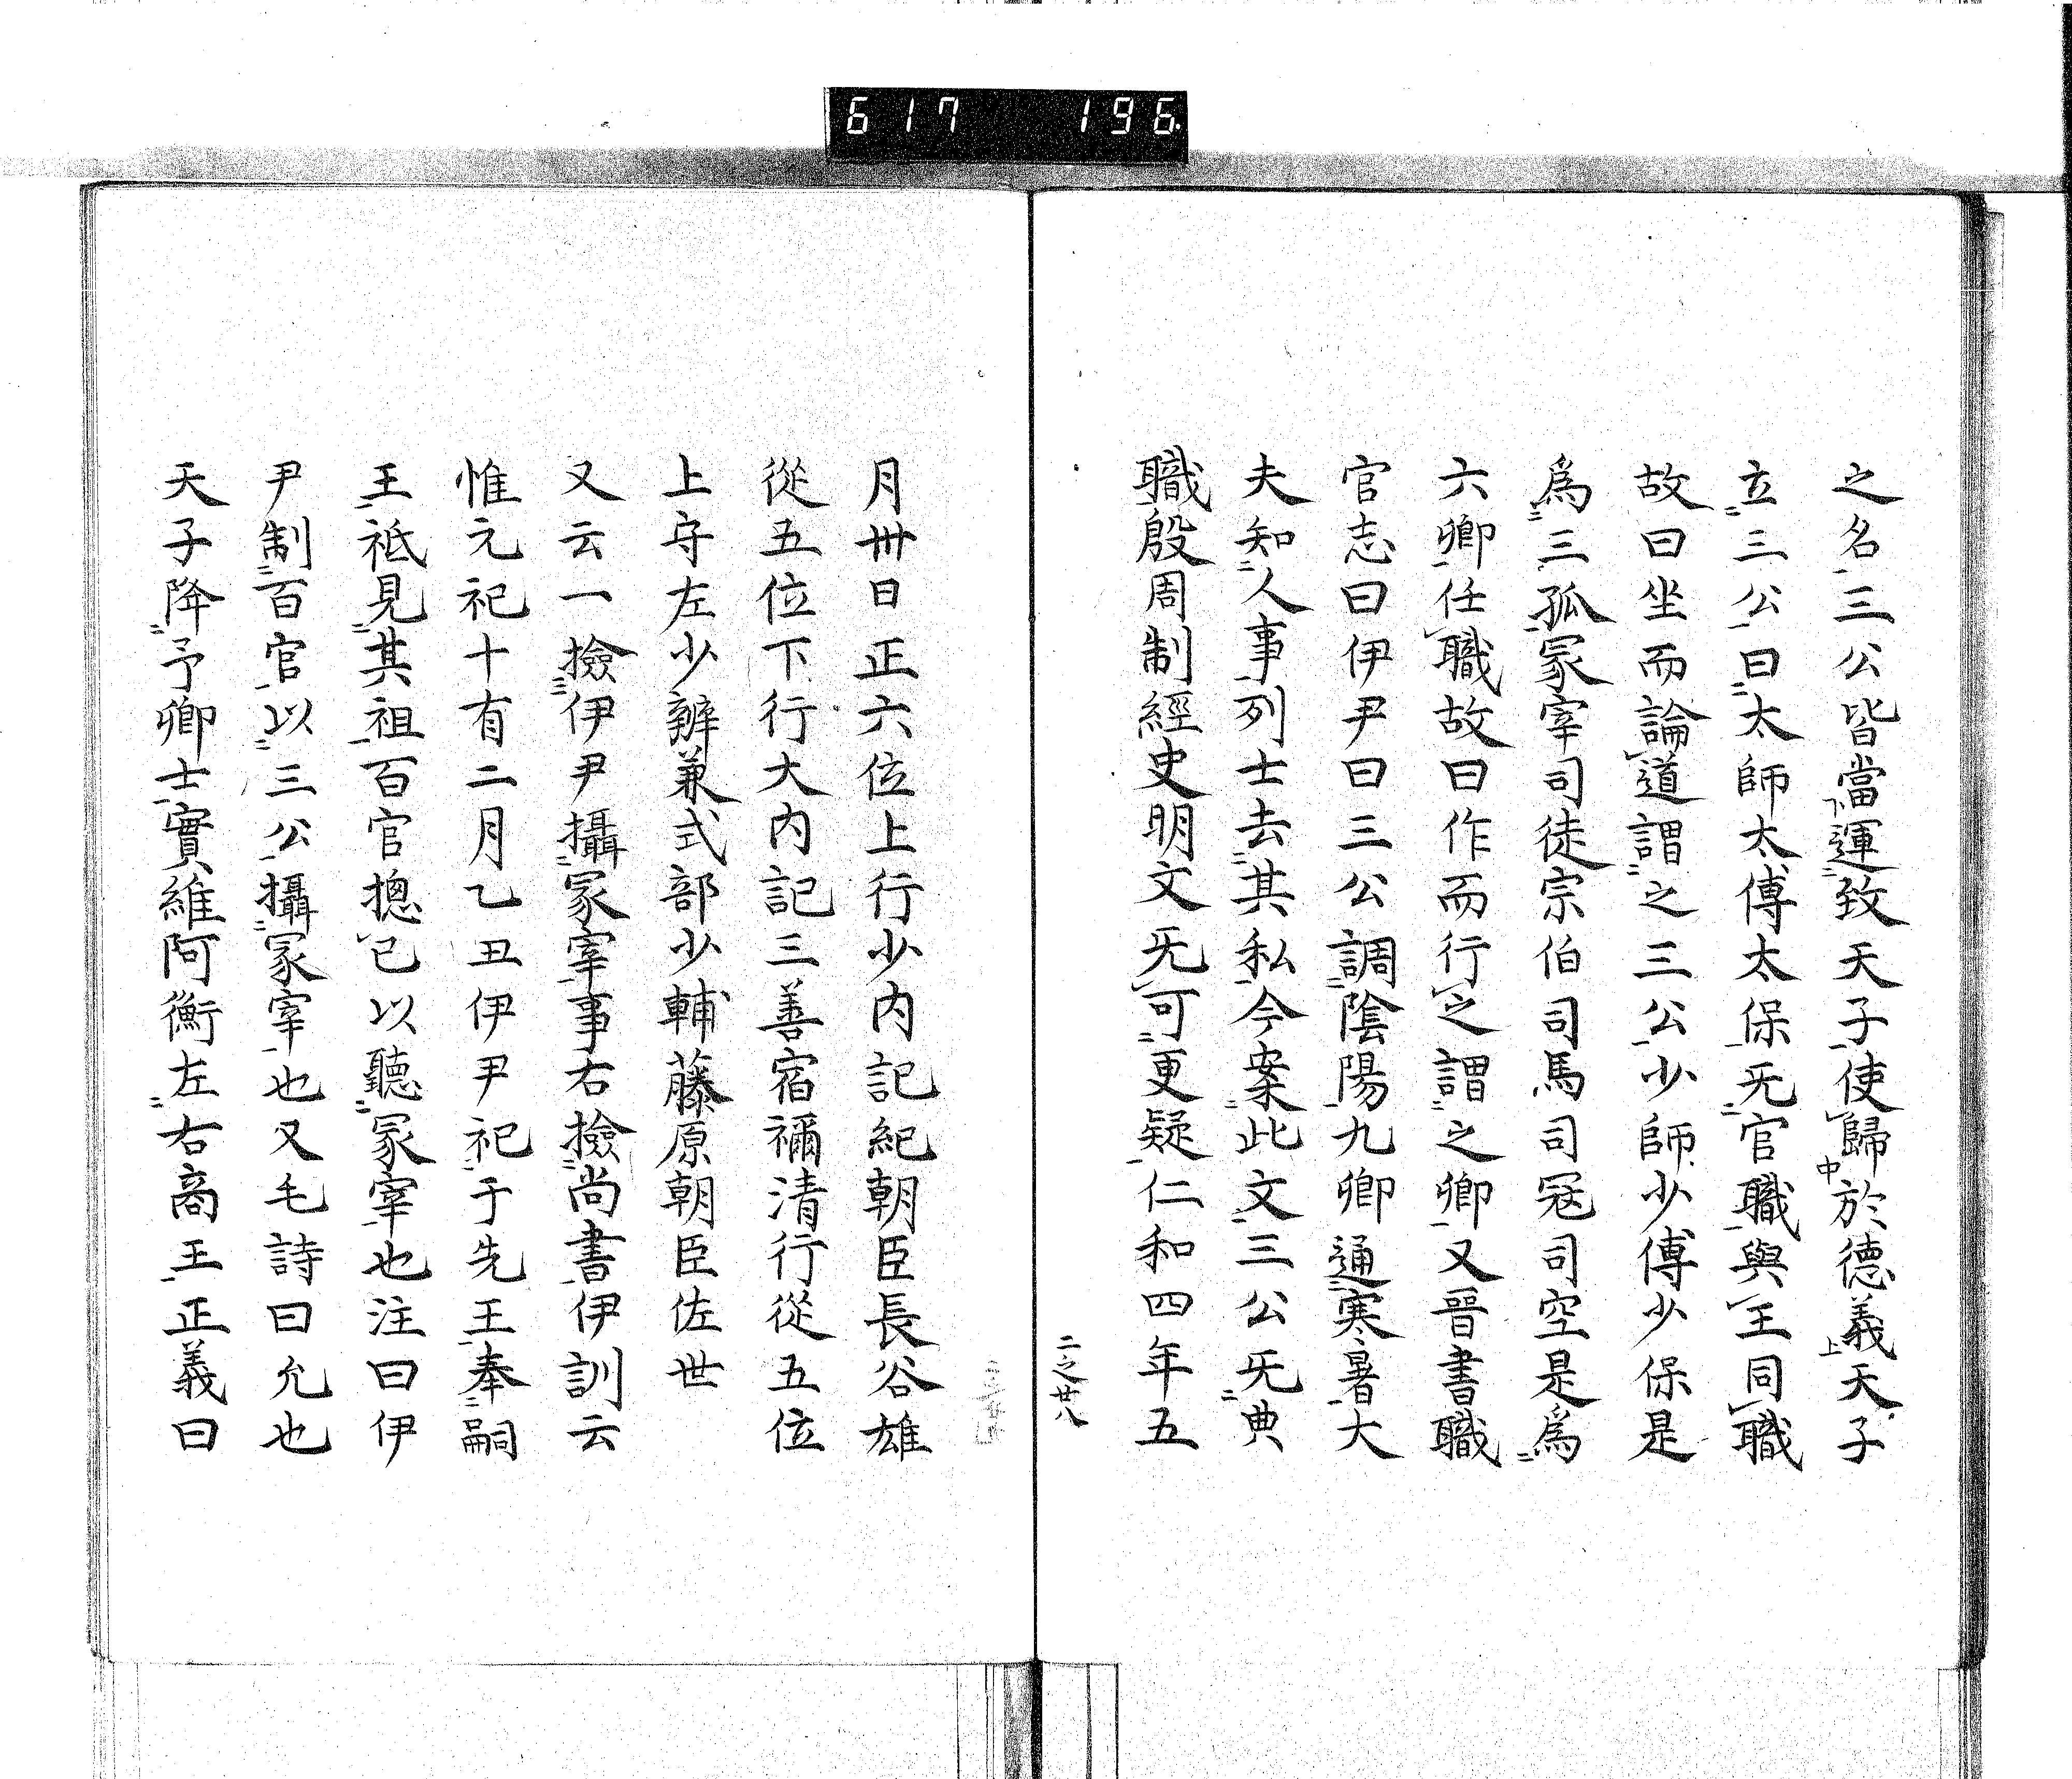 617 196.
之名三公皆當運致天子使歸於德義天子
立三公曰太師太傅太保旡官職與王同職
故曰坐而論道謂之三公少師少傅少保是
爲三孤冢宰司徒宗伯司馬司冦司空是爲
六卿任職故曰作而行之謂之卿又晉書職
官志曰伊尹曰三公調陰陽九卿通寒暑大
夫知人事列士去其私今案此文三公旡典
職殷周制經史明文旡可更疑仁和四年五
二之廿八
月卅日正六位上行少内記紀朝臣長谷雄
從五位下行大内記三善宿禰清行從五位
上守左少辨兼式部少輔藤原朝臣佐世
又云一撿伊尹攝冢宰事右撿尚書伊訓云
惟元祀十有二月乙丑伊尹祀于先王奉嗣
王祗見其祖百官揔已以聽冢宰也注曰伊
尹制百官以三公攝冢宰也又毛詩曰允也
天子降予卿士實維阿衡左右商王正義曰